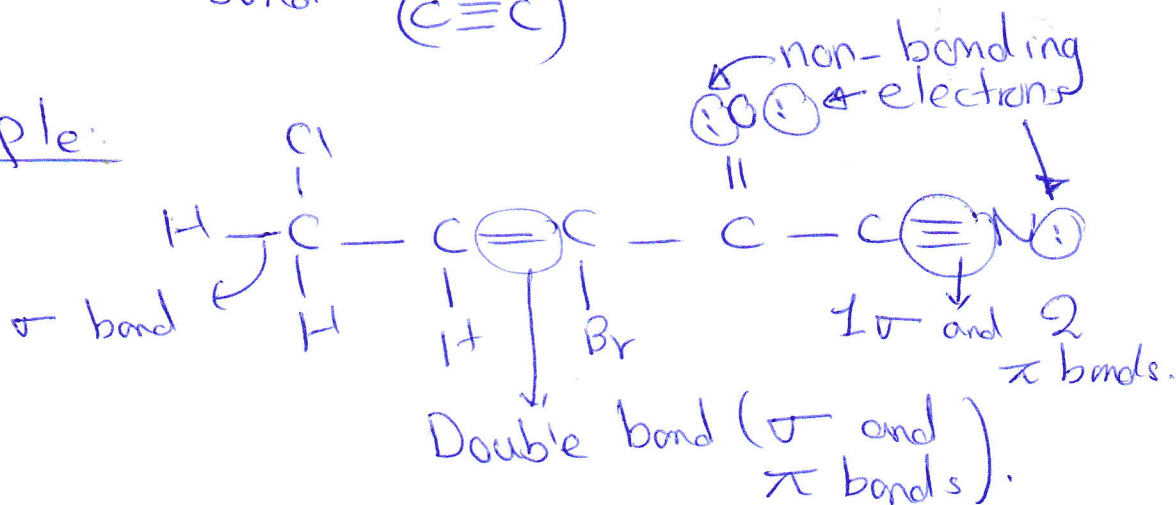 (C≡C)
non-bonding
electrons
ple:
Cl
:O:
||
H — C — C = C — C — C ≡ N :
H
H
Br
σ bond
1σ and 2
π bonds.
Double bond (σ and
π bonds).